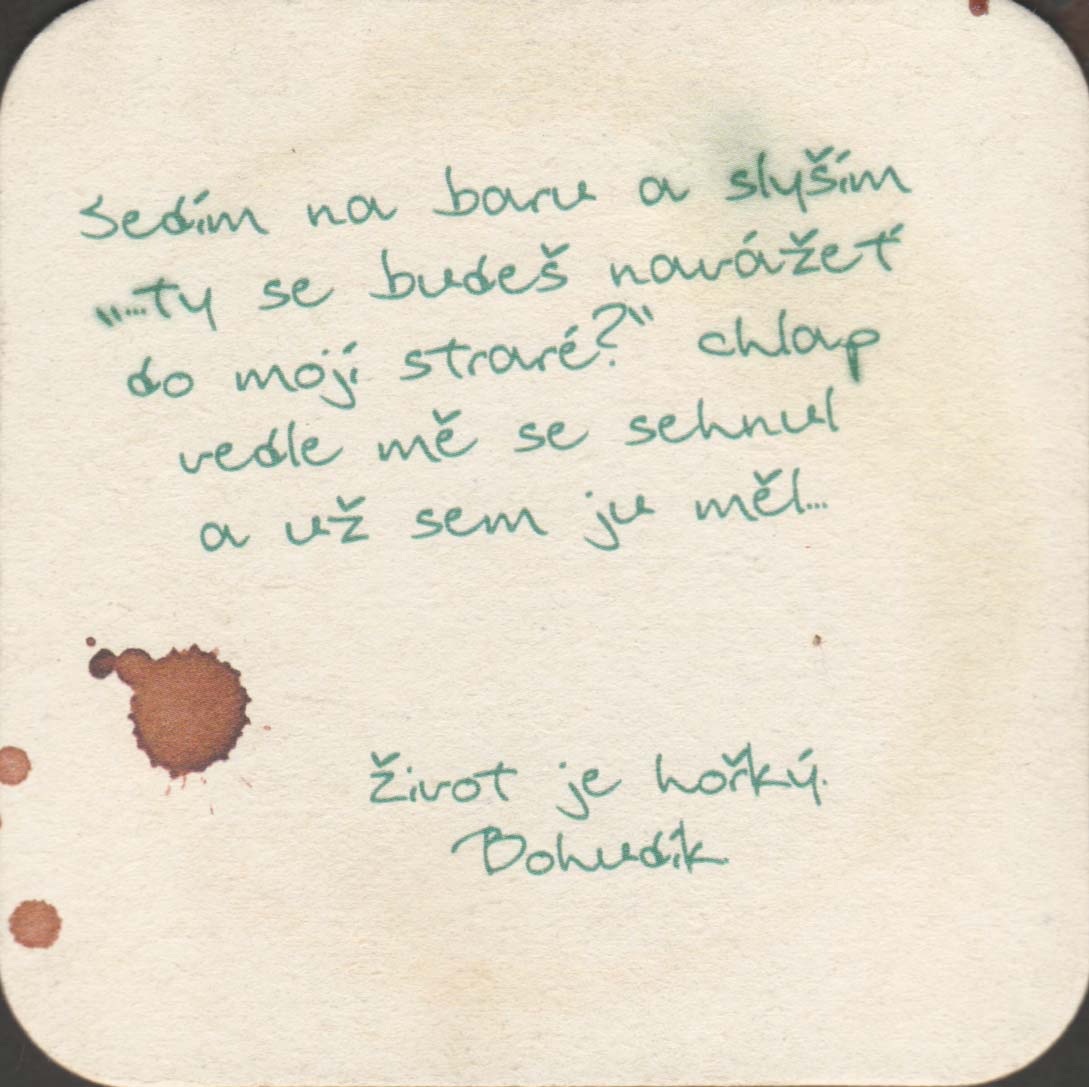 Sedím na baru a slyším
"...ty se budeš navážeť
do mojí straré?" chlap
vedle mě se sehnul
a už sem ju měl...
Život je hořký.
Bohudík